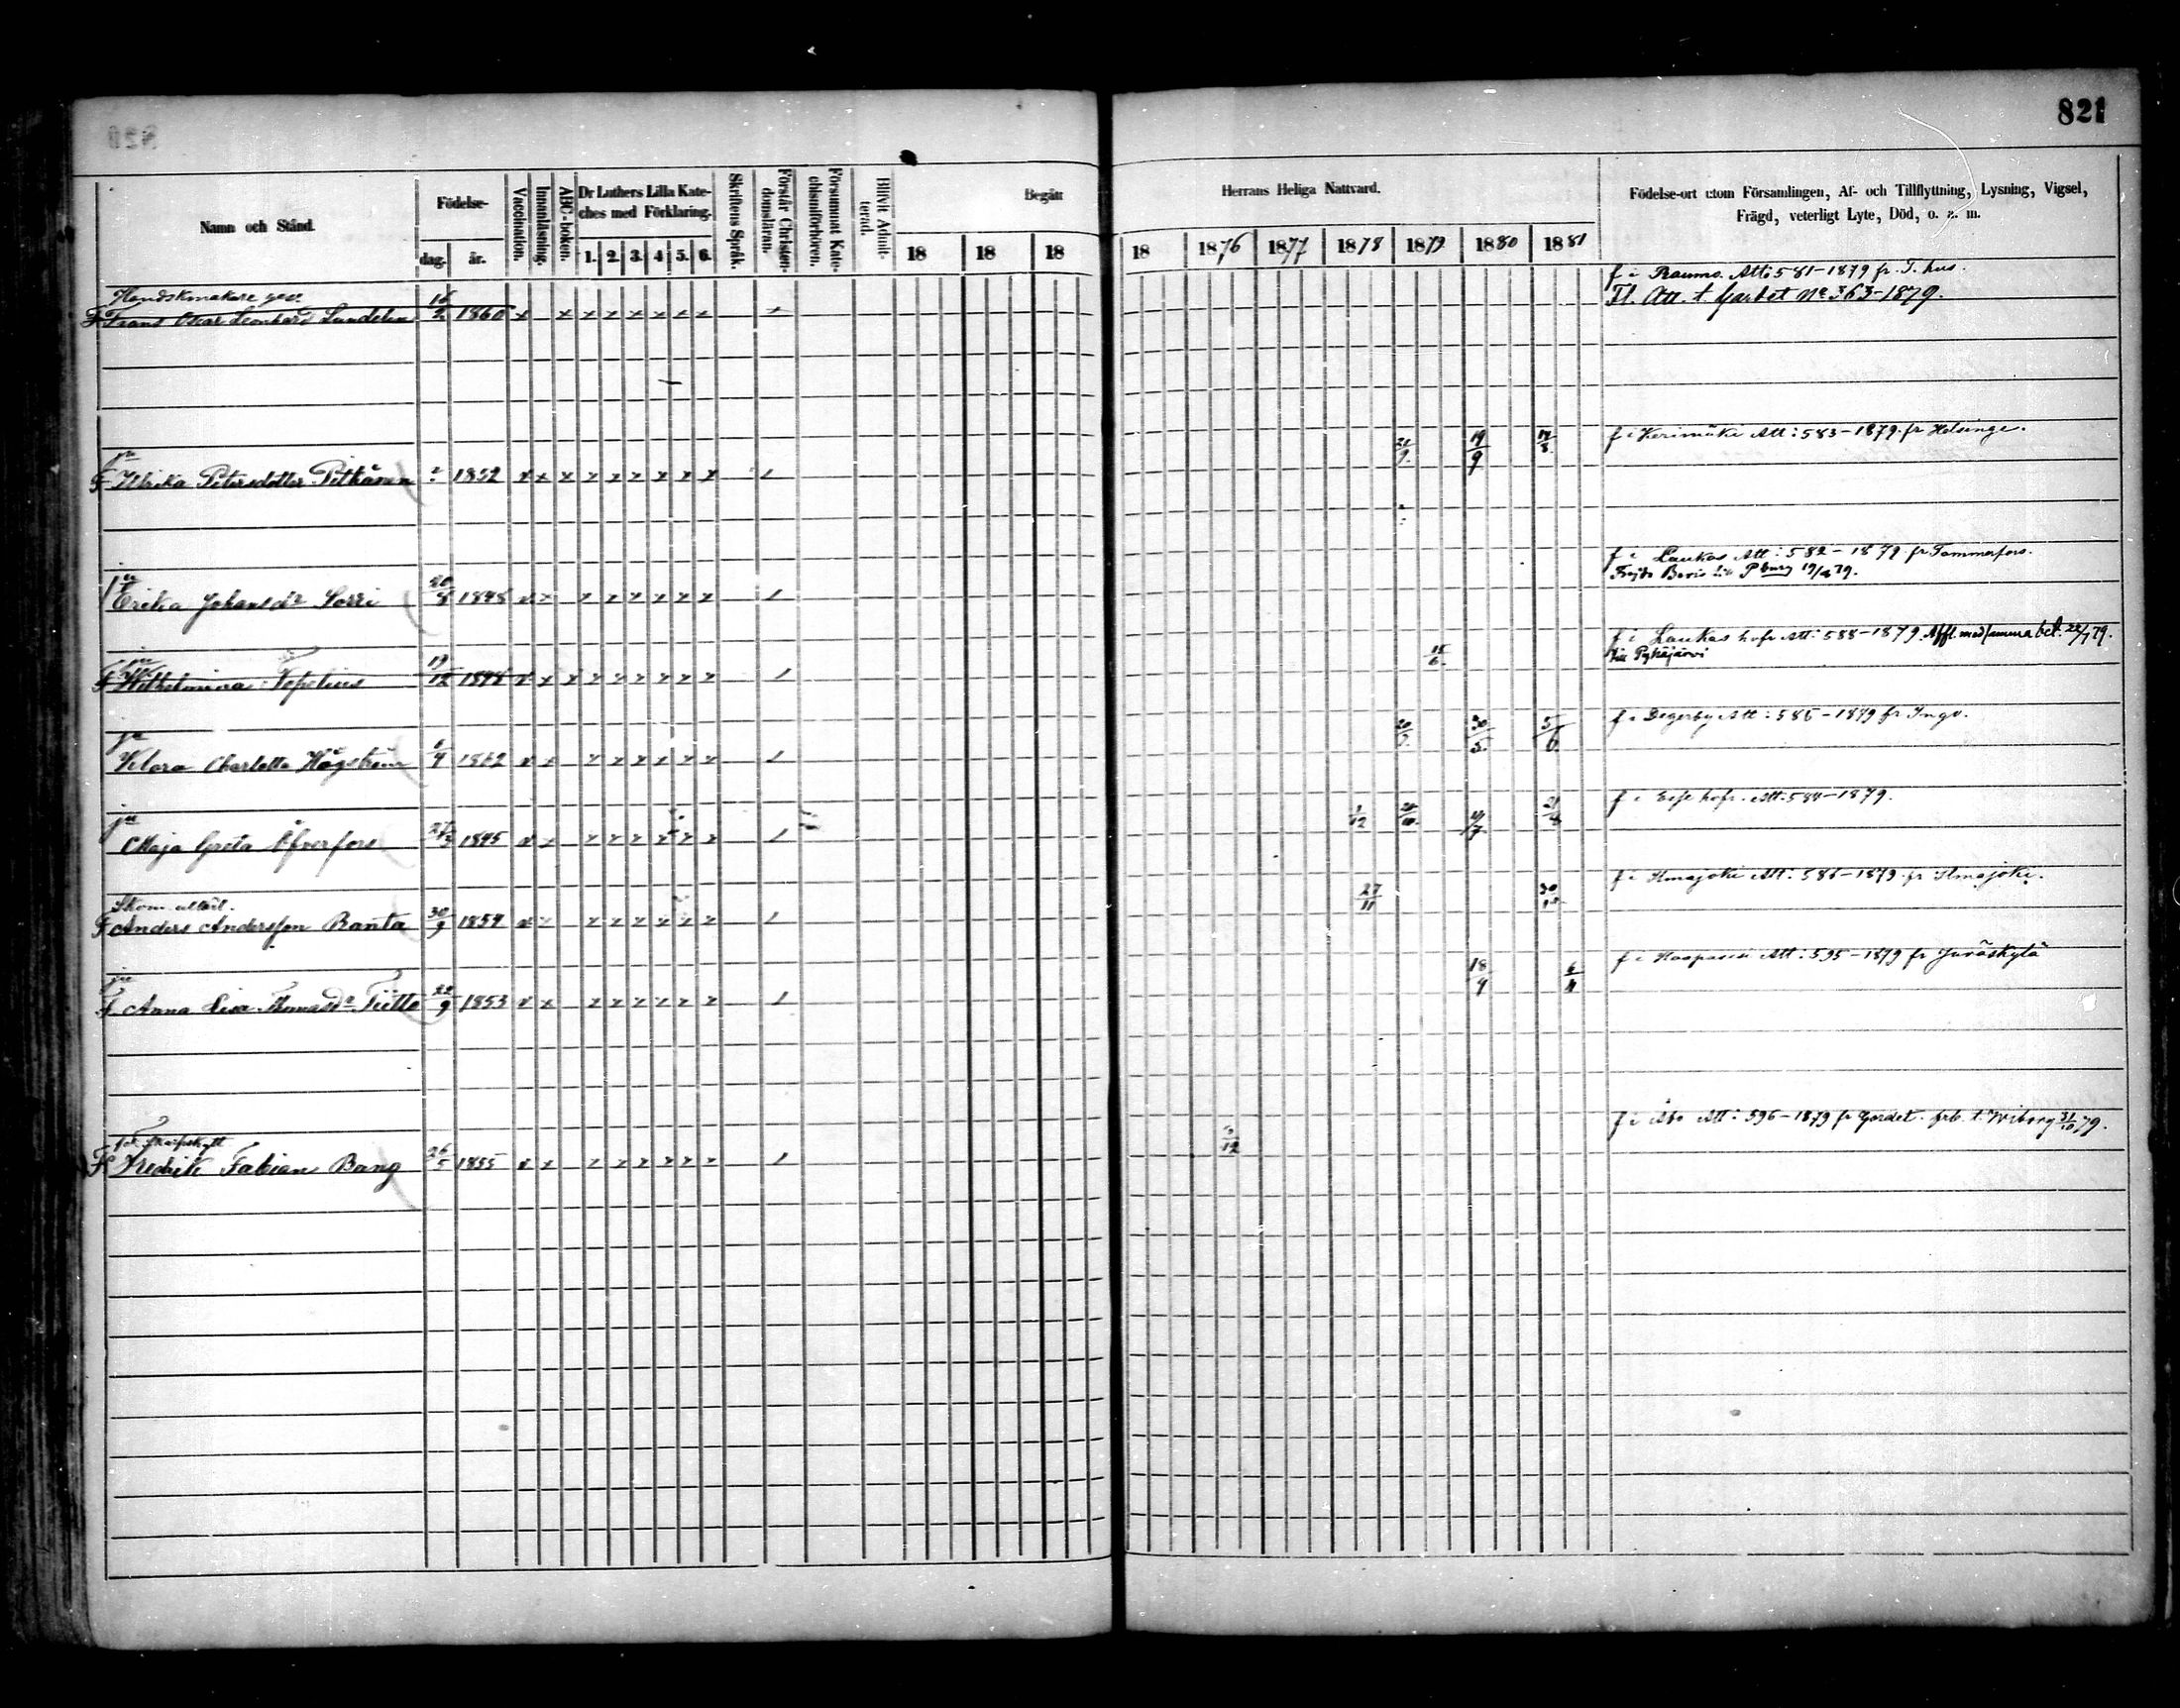 821
Namn och Stånd.
Födelse-
dag.
år.
Vaccination.
Innanläsning.
ABC-boken.
Dr Luthers Lilla Kate-
ches med Förklaring.
1. 2. 3. 4 5. 6.
Skriftens Språk.
Förstår Christen-
domsläran.
Försummat Kate-
chismiförhören.
Blifvit Admit-
terad.
Begått
18 18 18
Herrans Heliga Nattvard.
18 1876 1877 1878 1879 1880 1881
Födelse-ort utom Församlingen, Af- och Tillflyttning, Lysning, Vigsel,
Frägd, veterligt Lyte, Död, o. s. m.
Handskmakare ges.
F Frans Oscar Leonhard Lundelin 1860 x x x x x x x x
f i Raumo. Att: 581-1879 fr. T. hus.
Fl. Att. t. Gardet No 363-1879.
F Ulrika Petersdotter Pitkänen 1852 x x x x x x x x x
21/9 19/9 14/8
f i Kerimäki Att: 583-1879 fr Helsinge.
Erika Johansdr Sorri 20/8 1848 x x x x x x x x
f i Laukas Att: 582-1879 fr Tammerfors.
Bevis till Pburg 19/ 79.
F Wilhelmina Topelius 19/12 1848 x x x x x x x x x
15/6
f i Laukas hofr Att: 588-1879 Affl. med samma bet. 22/7 79.
till Pyhäjärvi
Klara Charlotta Hägström 1862 x x x x x x x x
30/5 5/6
f i Degerby Att: 585-1879 fr Ingo.
Maja Greta Öfverfors 1845 x x x x x x x x
1/12 11/7
f i Esse hofr. Att: 584-1879.
F Anders Andersson Ranta 30/9 1854 x x x x x x x x
27/11 30/10
f i Ilmajoki Att: 586-1879 fr Ilmajoki.
F Anna Lisa Thomasdr Tiitto 22/9 1853 x x x x x x x x
18/9 6/11
f i Haapavesi Att: 595-1879 fr Jyväskylä
F Fredrik Fabian Bang 26/5 1855 x x x x x x x x
3/12
f i Åbo Att: 596-1879 fr Gardet. frb. t. Wiborg 31/10 79.